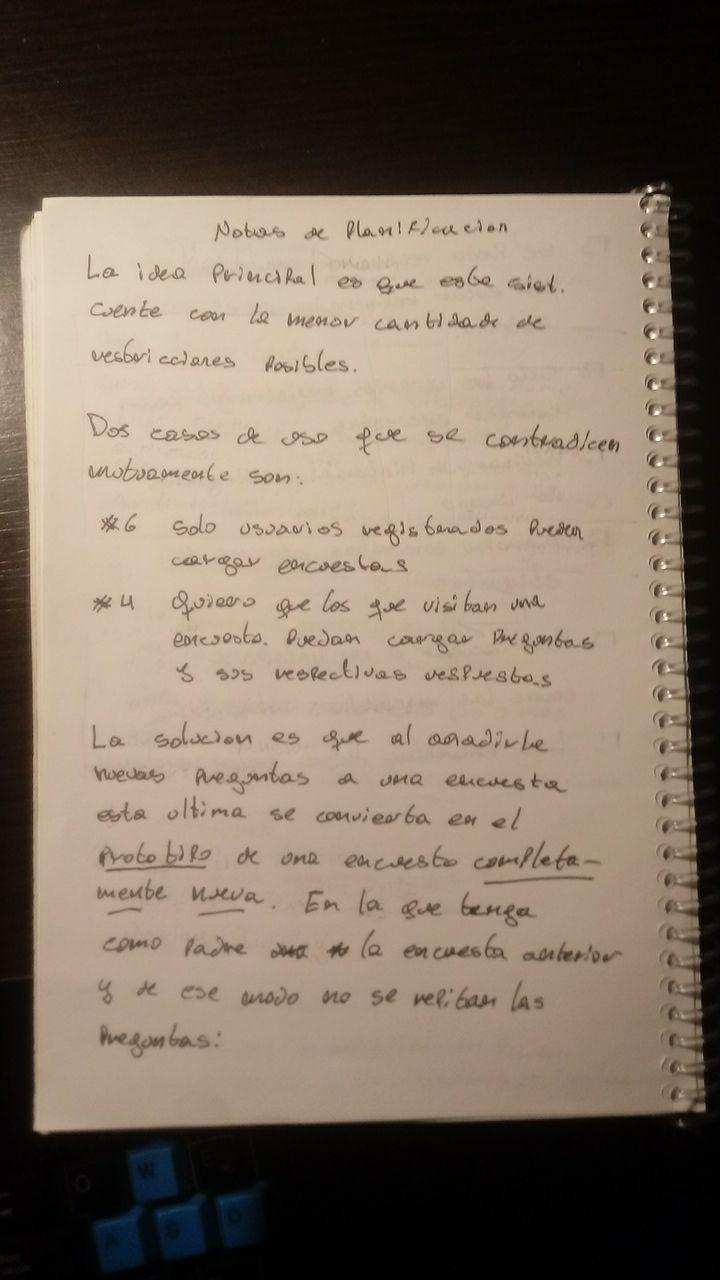 Notas de Planificacion
La idea Principal es que este sist.
cuente con la menor cantidade de
restricciones Posibles.
Dos casos de uso que se contradicen
mutuamente son:
#6 Solo usuarios registrados Pueden
cargar encuestas
#4 Quiero que los que visitan una
encuesta. Puedan cargar Preguntas
y sus respectivas respuestas
La solucion es que al anadirle
nuevas Preguntas a una encuesta
esta ultima se convierta en el
Prototipo de una encuesta completa-
mente nueva. En la que tenga
como Padre la encuesta anterior
y de ese modo no se repitan las
Preguntas:
W
A S D